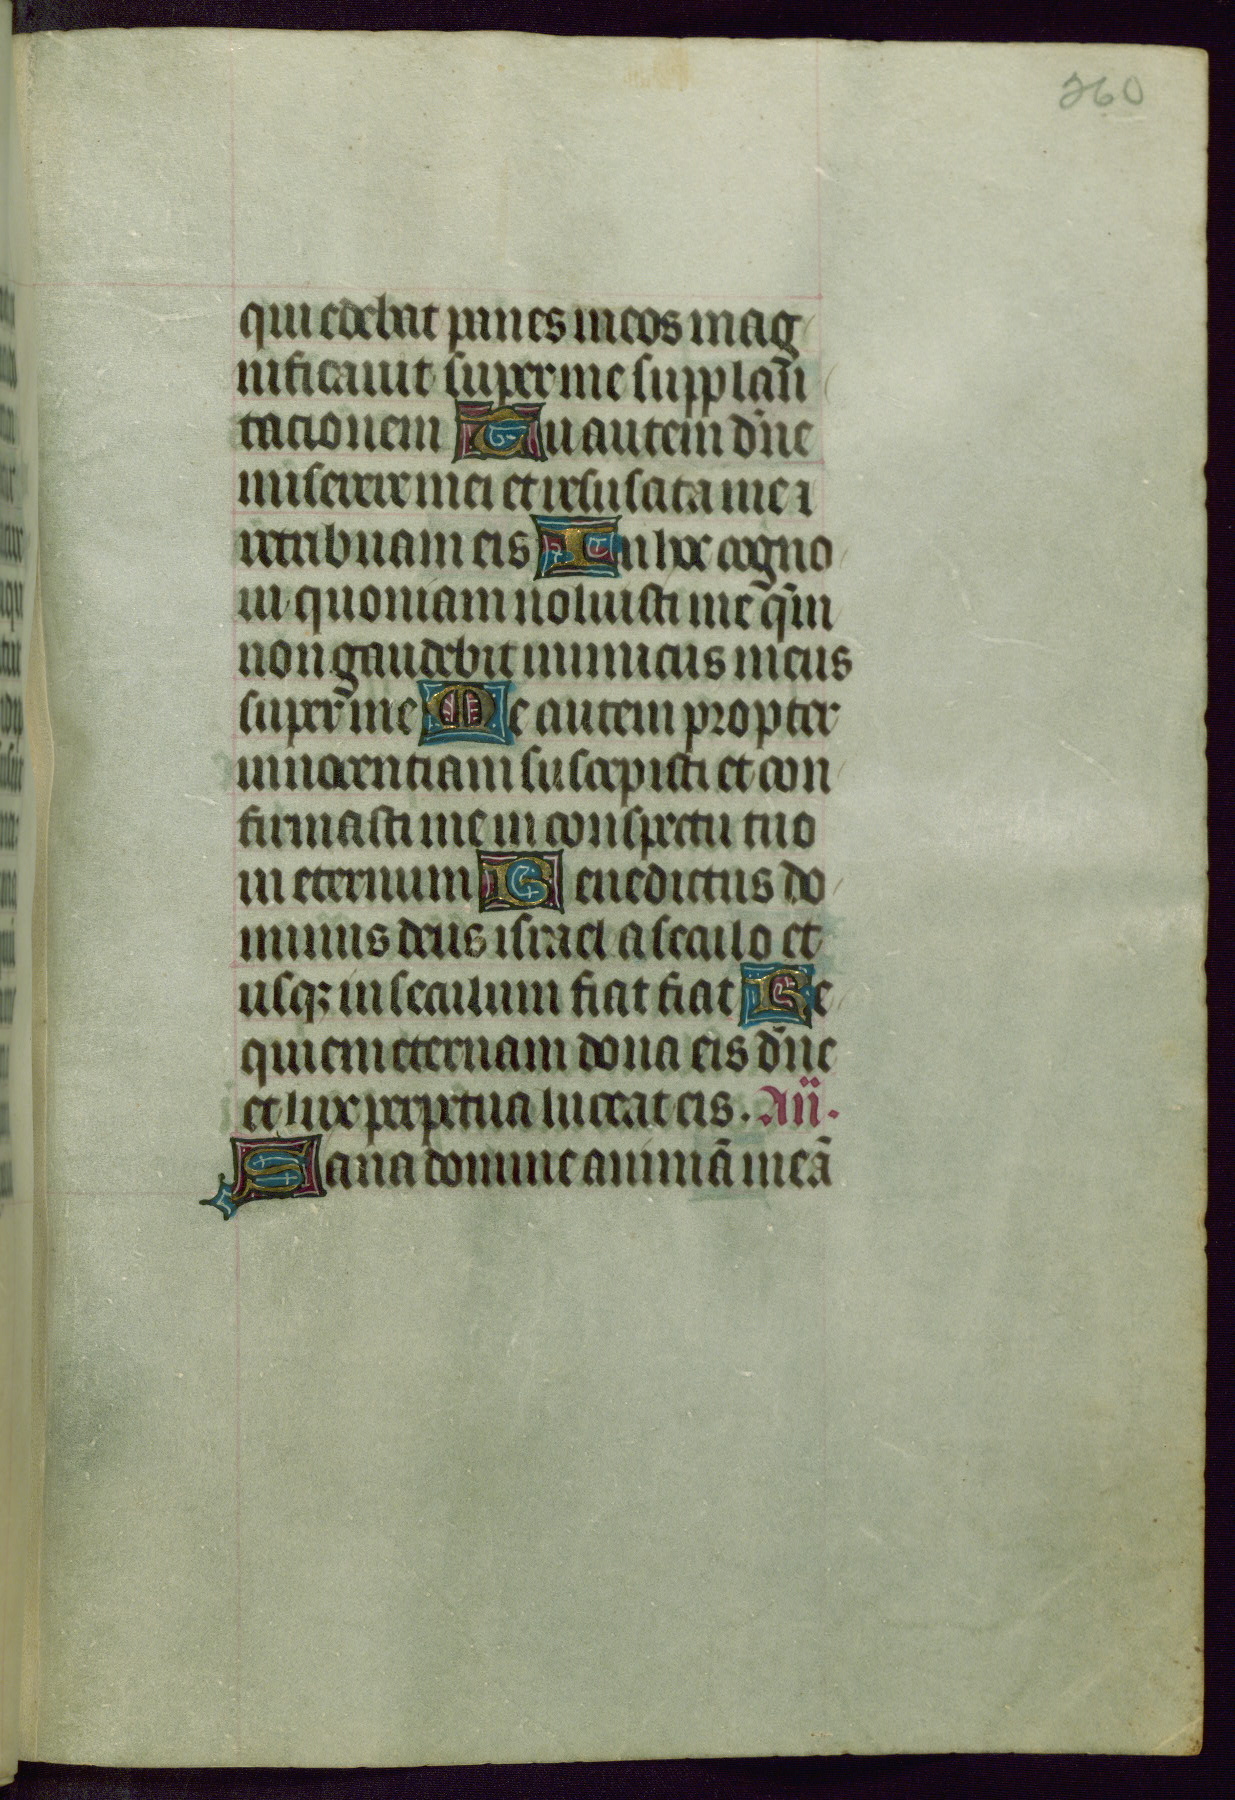 260
qui edebat panes meos mag
nificauit super me supplan̄
tacionem Tu autem dn̄e
miserere mei et resuscita me ⁊
retribuam eis In hoc cogno
ui quoniam uoluisti me qm̄
non gaudebit inimicus meus
super me Me autem propter
innocentiam suscepisti et con
firmasti me in conspectu tuo
in eternum Benedictus do
minus deus israel a seculo et
usqꝫ in seculum fiat fiat Re
quiem eternam dona eis dn̄e
et lux perpetua luceat eis. An̄.
Sana domine animā meā